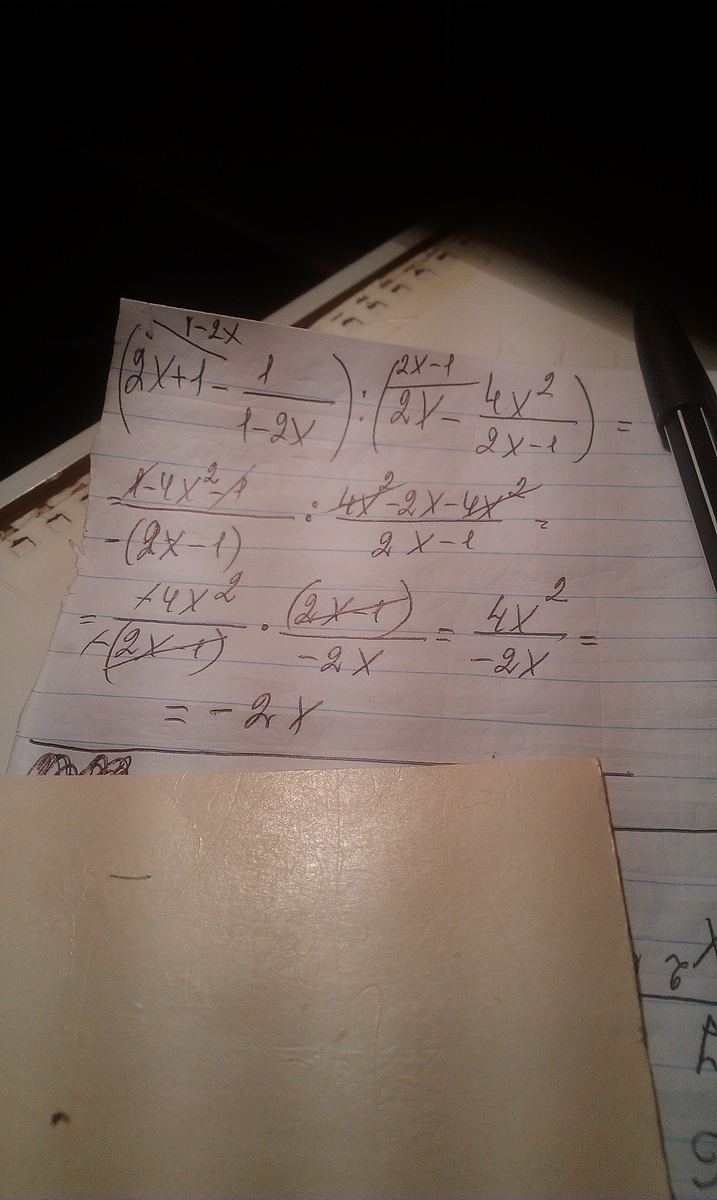 (2x+1 - 1/(1-2x)) : (2x - 4x²/(2x-1)) =
1-2x
2x-1
= (1-4x²-1)/(-(2x-1)) : (4x²-2x-4x²)/(2x-1) =
= (-4x²)/(-(2x-1)) · (2x-1)/(-2x) = 4x²/(-2x) =
= -2x